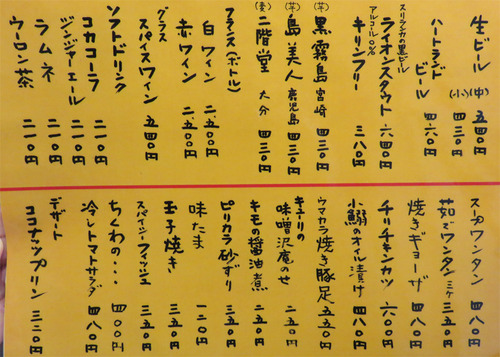 生ビール (中) 五四〇円
(小) 四三〇円
ハートランド
ビール 四六〇円
スリランカの黒ビール
ライオンスタウト 六四〇円
アルコール0%
キリンフリー 三八〇円
(芋) 黒霧島 宮崎 四三〇円
(芋) 島美人 鹿児島 四三〇円
(麦) 二階堂 大分 四三〇円
フランス(ボトル)
白ワイン 二、五〇〇円
赤ワイン 二、五〇〇円
グラス
スパイスワイン 五四〇円
ソフトドリンク
コカコーラ 二一〇円
ジンジャーエール 二一〇円
ラムネ 二一〇円
ウーロン茶 二一〇円
スープワンタン 四八〇円
茹でワンタン 三ケ 三五〇円
焼きギョーザ 四八〇円
チリチキンカツ 六〇〇円
小鰯のオイル漬け 四八〇円
ウマカラ焼き豚足 五五〇円
キューリの
味噌沢庵のせ 二五〇円
キモの醤油煮 二五〇円
ピリカラ砂ずり 三五〇円
味たま 一二〇円
玉子焼き 三五〇円
スパイシーフィッシュ 三五〇円
ちくわの・・・ 四〇〇円
冷しトマトサラダ 四八〇円
デザート
ココナッツプリン 三二〇円